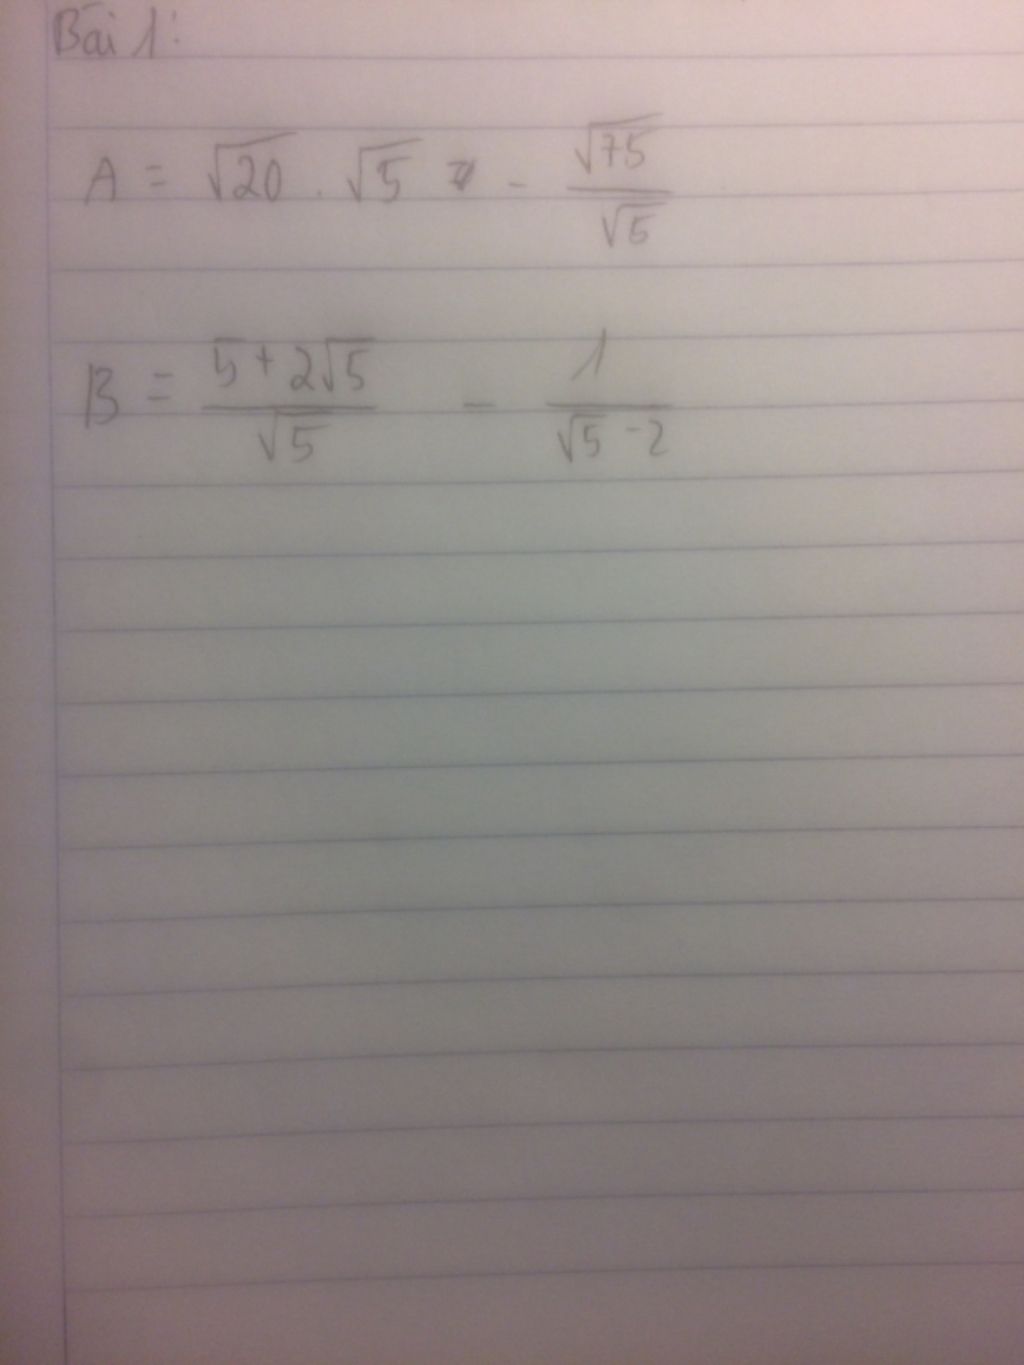 Bài 1:
A = √20 . √5 - √75/√5
B = (5+2√5)/√5 - 1/(√5-2)